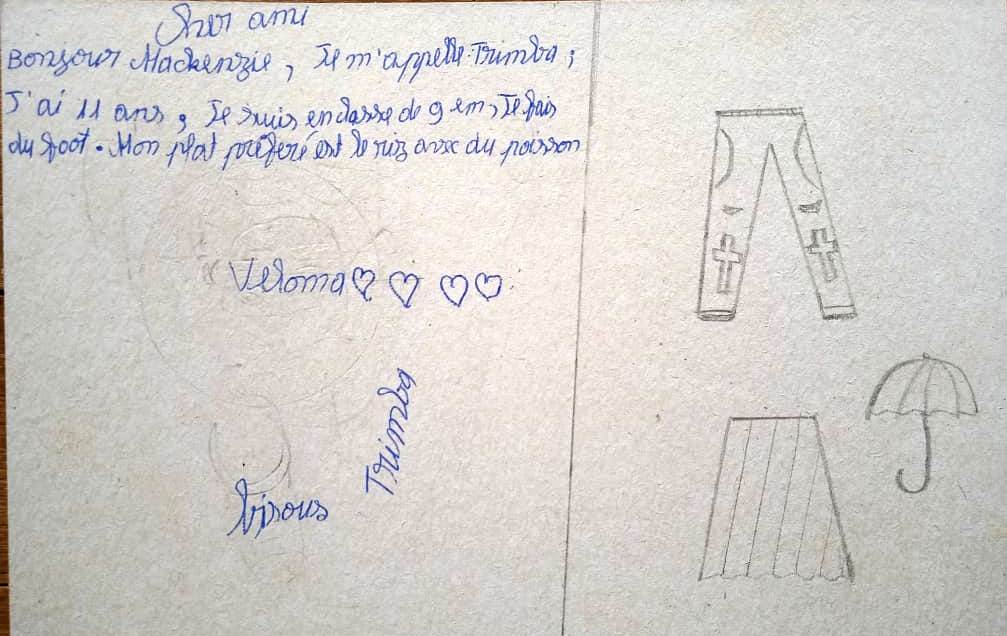 Cher ami
Bonjour Mackenzie, Je m'appelle Trimba,
J'ai 11 ans, Je suis en classe de 9 em, Je fais
du foot. Mon plat préféré est le riz avec du poisson
Veloma ♡ ♡ ♡ ♡
Trimba
bisous